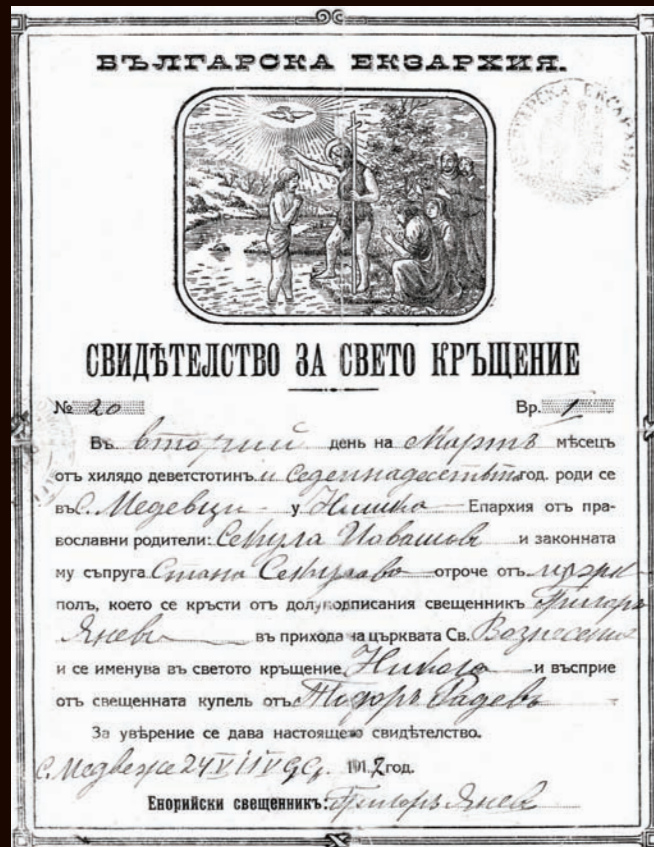 БЪЛГАРСКА ЕКЗАРХИЯ.
БЪЛГАРСКА ЕКЗАРХИЯ
СВИДѢТЕЛСТВО ЗА СВЕТО КРЪЩЕНИЕ
№ 20 Вр. 1
Въ вторий день на Мартъ мѣсецъ
отъ хилядо деветстотинъ и седемнадесетьтъ год. роди се
въ с. Медевци у Нишка Епархия отъ пра-
вославни родители: Секула и законната
му съпруга Стана Секулова отроче отъ
полъ, което се кръсти отъ долуподписания свещенникъ Григоръ
Яневъ въ прихода на църквата Св. Вознесение
и се именува въ светото кръщение Никола и въсприе
отъ свещенната купель отъ Тодоръ Радевъ
За увѣрение се дава настоящето свидѣтелство.
с. Медвежe 24 год.
Енорийски свещенникъ: Григоръ Яневъ